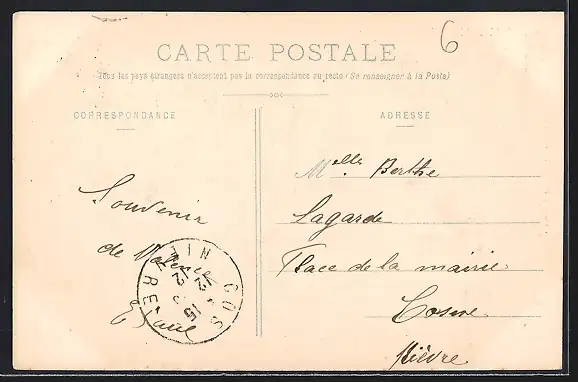 6
CARTE POSTALE
Tous les pays étrangers n'acceptent pas la correspondance au recto (Se renseigner à la Poste)
CORRESPONDANCE
ADRESSE
Souvenir
de Valence
Melle Berthe
Lagarde
Place de la mairie
Cosne
Nièvre
COS